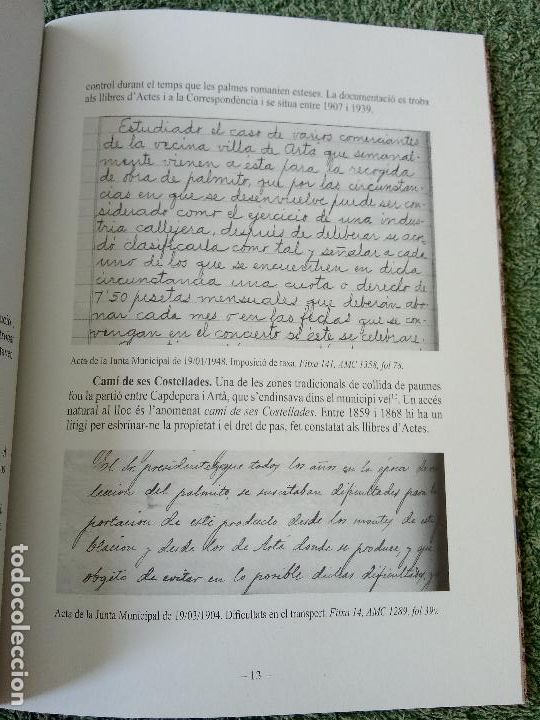 control durant el temps que les palmes romanien esteses. La documentació es troba
als llibres d'Actes i a la Correspondència i se situa entre 1907 i 1939.
Estudiado el caso de varios comerciantes
de la vecina villa de Artá que semanal-
mente vienen a esta para la recogida
de obra de palmito, que por las circunstan-
cias en que se desenvuelve puede ser con-
siderado como el ejercicio de una indus-
tria callejera, después de deliberar se acor-
dó clasificarla como tal y señalar a cada
uno de los que se encuentren en dicha
circunstancia una cuota o derecho de
7'50 pesetas mensuales que deberán abo-
nar cada mes o en las fechas que se con-
vengan en el concierto si este se celebrare.
Acta de la Junta Municipal de 19/01/1948. Imposició de taxa. Fitxa 141, AMC 1358, fol 78.
Camí de ses Costellades. Una de les zones tradicionals de collida de paumes
fou la partió entre Capdepera i Artà, que s'endinsava dins el municipi veí. Un accés
natural al lloc és l'anomenat camí de ses Costellades. Entre 1859 i 1868 hi ha un
litigi per esbrinar-ne la propietat i el dret de pas, fet constatat als llibres d'Actes.
El Sr. presidente que todos los años en la época de
lección del palmito se suscitaban dificultades para
portacion de este producto desde los montes de esta
blacion y desde los de Artá donde se produce, y que
objeto de evitar en lo posible dichas dificultades,
Acta de la Junta Municipal de 19/03/1904. Dificultats en el transport. Fitxa 14, AMC 1289, fol 39v.
– 13 –
todocoleccion